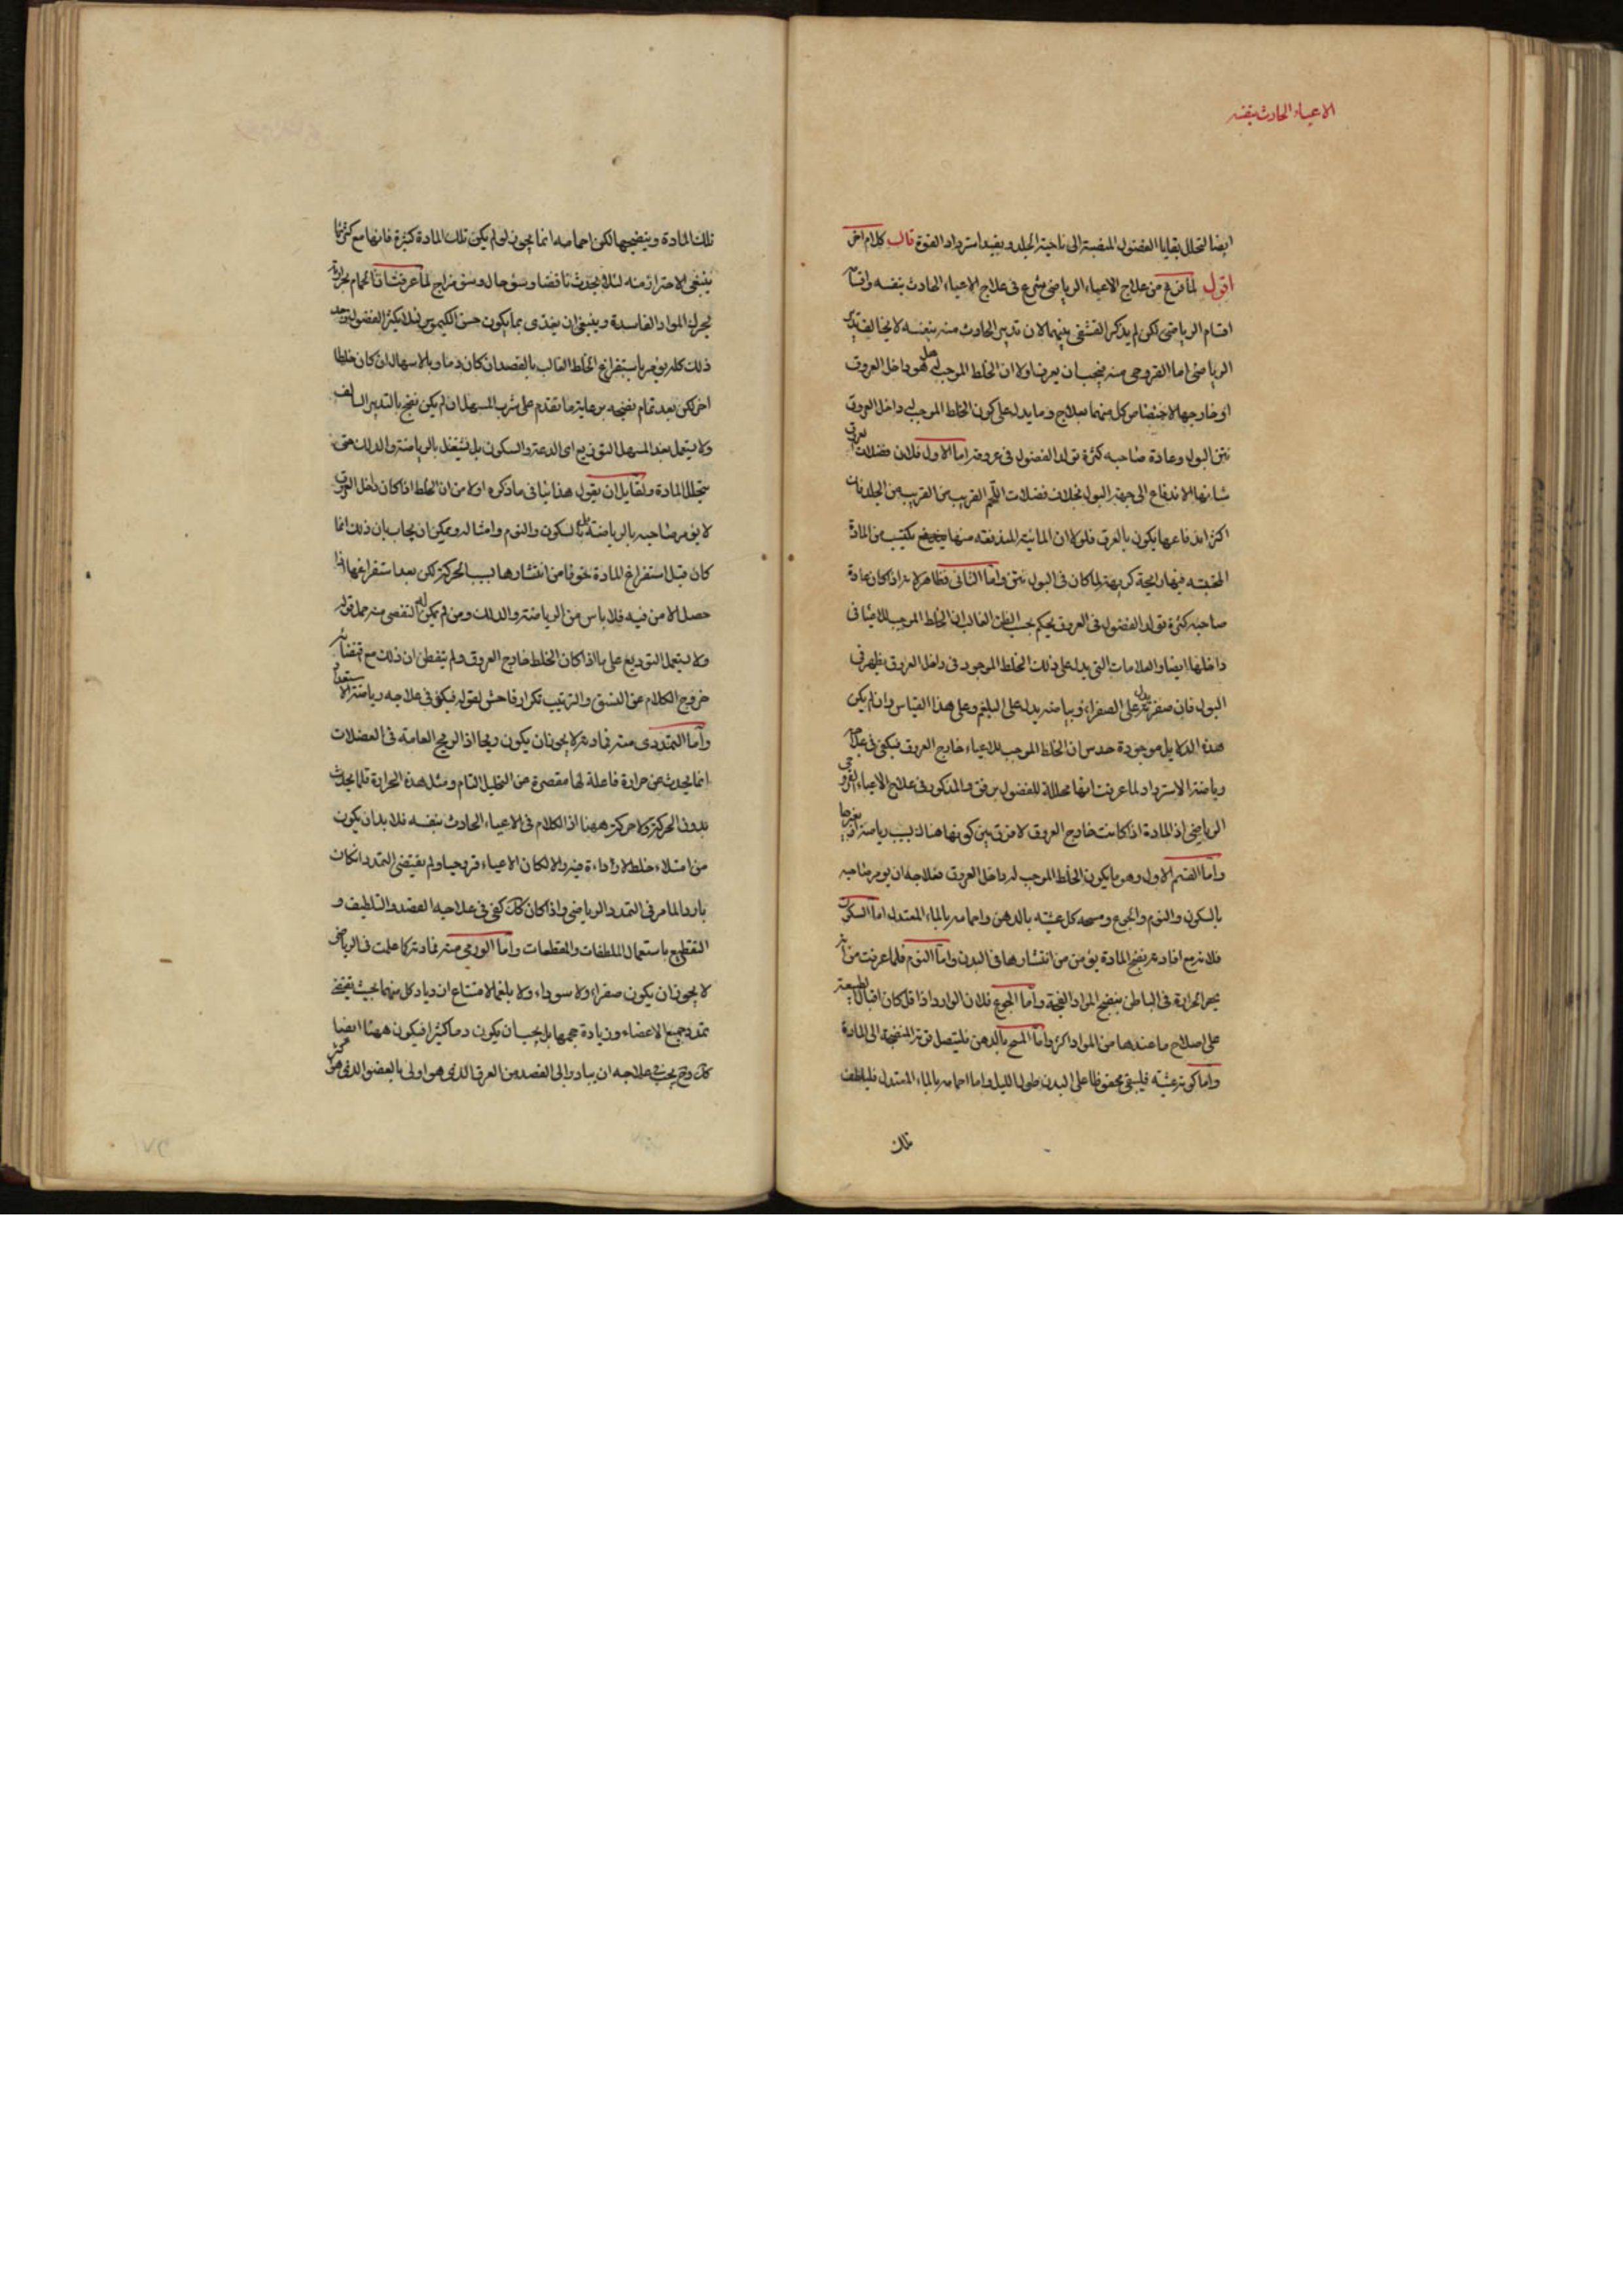 الاعياء الحادث بنفسه
ايضا لتحلل بقايا الفضول المنصبة الى ناحية الجلد ويفيد استرداد القوة قال كلام اخر
اقول لما فرغ من علاج الاعياء الرياضى شرع فى علاج الاعياء الحادث بنفسه واقسامه
اقسام الرياضى لكن لم يذكر القشفى بينهما لان تدبير الحادث منه بنفسه لا يخالف تدبير
الرياضى اما القروحى منه فيجب ان يعرف اولا ان الخلط الموجب له هل هو داخل العروق
او خارجها لاختصاص كل منهما بعلاج ومما يدل على كون الخلط الموجب له داخل العروق
نتن البول وعادة صاحبه كثرة تولد الفضول فى عروقه اما الاول فلان فضلات العروق
شانها الاندفاع الى جهة البول بخلاف فضلات اللحم القريب من القريب من الجلد فان
اكثر اندفاعها يكون بالعرق فلولا ان المائية المندفعة منها يكتسب من المادة
المحتبسة فيها رائحة كريهة لما كان فى البول نتن واما الثانى فظاهر لانه اذا كان عادة
صاحبه كثرة تولد الفضول فى العروق يحكم بحسب الظن الغالب ان الخلط الموجب للاعياء فى
داخلها ايضا والعلامات التى يدل على ذلك الخلط الموجود فى داخل العروق يظهر فى
البول فان صفرته يدل على الصفراء وبياضه يدل على البلغم وعلى هذا القياس وان لم يكن
هذه الدلايل موجودة حدس ان الخلط الموجب للاعياء خارج العروق فيكفى فى علاجه
رياضة الاسترداد لما عرفت انها محللة للفضول برفق والمذكور فى علاج الاعياء القروحى
الرياضى اذ المادة اذا كانت خارج العروق لا فرق بين كونها هناك بسبب رياضة او بغيرها
واما القسم الاول وهو ما يكون الخلط الموجب له داخل العروق فعلاجه ان يومر صاحبه
بالسكون والنوم والجوع ومسحه كل عشية بالدهن واحمامه بالماء المعتدل اما السكون
فلانه مع افادته نضج المادة يؤمن من انتشارها فى البدن واما النوم فلما عرفت من انه
يحر الحرارة فى الباطن فينضج المواد الفجة واما الجوع فلان الوارد اذا قل كان اقبال الطبيعة
على اصلاح ما عندها من المواد اكثر واما المسح بالدهن فليتصل قوته المنضجة الى المادة
واما كونه عشية فليبقى محفوظا على البدن طول الليل واما احمامه بالماء المعتدل فليلطف
تلك
تلك المادة وينضجها لكن احمامه انما يجوز لو لم يكن تلك المادة كثيرة فانها مع كثرتها
ينبغى الاحتراز منه لئلا يحدث نافضا وسؤ حال وسؤ مزاج لما عرفت ان الحمام بحرارته
يحرك المواد الفاسدة وينبغى ان يغذى بما يكون حسن الكيموس لئلا يكثر الفضول بعد
ذلك كله يؤمر باستفراغ الخلط الغالب بالفصد ان كان دما وبالاسهال ان كان خلطا
اخر لكن بعد تمام نضجه برعاية ما تقدم على شرب المسهل ان لم يكن نضج بالتدبير السالف
ولا يستعمل بعد المسهل التوديع اى الدعة والسكون بل يشتغل بالرياضة والدلك حتى
يتحلل المادة ولقايل ان يقول هذا ينافى ما ذكره اولا من ان الخلط اذا كان داخل العروق
لا يؤمر صاحبه بالرياضة بل بالسكون والنوم وامثاله ويمكن ان يجاب بان ذلك انما
كان قبل استفراغ المادة خوفا من انتشارها بسبب الحركة لكن بعد استفراغها اذا
حصل الامن فيه فلا باس من الرياضة والدلك ومن لم يمكن له التفصى منه حمل قوله
ولا يستعمل التوديع على ما اذا كان الخلط خارج العروق ولم يتفطن ان ذلك مع اقتضائه
خروج الكلام عن النسق والترتيب تكرار فاحش لقوله فيكفى فى علاجه رياضة الاسترداد
واما التمددى منه فمادته لا يجوز ان يكون ريحا اذ الريح العامة فى العضلات
انما يحدث عن حرارة فاعلة لها مقصرة عن التحليل التام ومثل هذه الحرارة قلما يحدث
بدون الحركة ولا حركة ههنا اذ الكلام فى الاعياء الحادث بنفسه فلا بد ان يكون
من امتلاء خلط لا رداءة فيه والا لكان الاعياء قروحيا ولم يقتضى التمدد ان كان
باردا لما مر فى التمدد الرياضى واذا كان كذلك كفى فى علاجه الفصد والتلطيف و
التقطيع باستعمال الملطفات والمقطعات واما الورمى منه فمادته كما علمت فى الرياضى
لا يجوز ان يكون صفراء ولا سوداء ولا بلغما لامتناع ازدياد كل منهما بحيث يقتضى
تمدد جميع الاعضاء وزيادة حجمها بل يجب ان يكون دما كثيرا فيكون ههنا ايضا
كذلك وح يجب فى علاجه ان يبادر الى الفصد من العرق الذى هو اولى بالعضو الذى هو اكثر